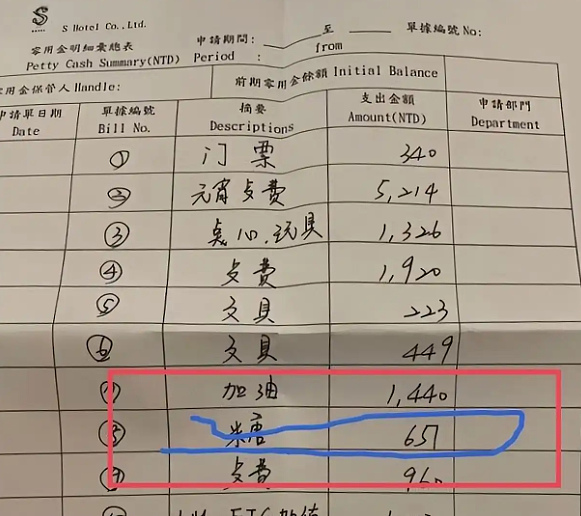 S
S Hotel Co., Ltd.
零用金明細彙總表 申請期間: 至 單據編號 No:
Petty Cash Summary(NTD) Period : from
零用金保管人 Handle: 前期零用金餘額 Initial Balance
申請單日期 單據編號 摘要 支出金額 申請部門
Date Bill No. Descriptions Amount(NTD) Department
① 门票 340
② 元宵餐費 5,214
③ 點心.玩具 1,326
④ 餐費 1,920
⑤ 文具 223
⑥ 文具 449
⑦ 加油 1,440
⑧ 糖 657
⑨ 餐費 960
ETC加值